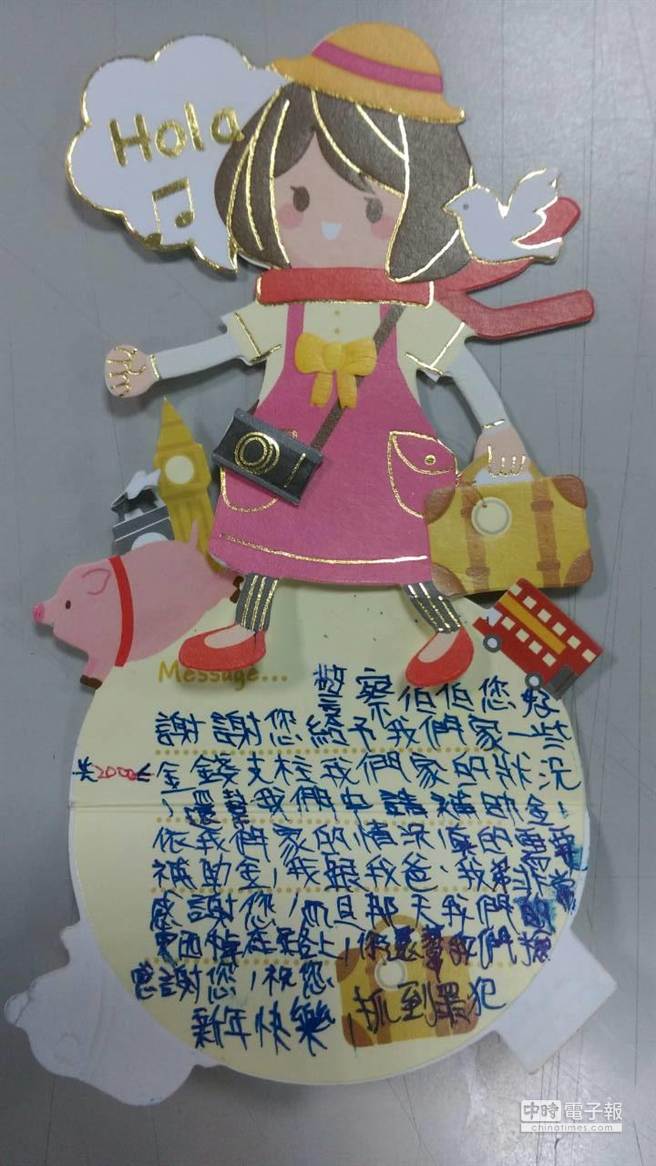 Hola
Message...
警察伯伯您好
謝謝您給予我們家一些
共2000元
金錢支柱我們家的狀況
,還幫我們申請補助金,
依我們家的情況真的需要
補助金,我跟我爸、我弟非常
感謝您,而且那天我們的
東西掉在路上,你還幫我們撿
感謝您,祝您
新年快樂,抓到罪犯
中時電子報
chinatimes.com